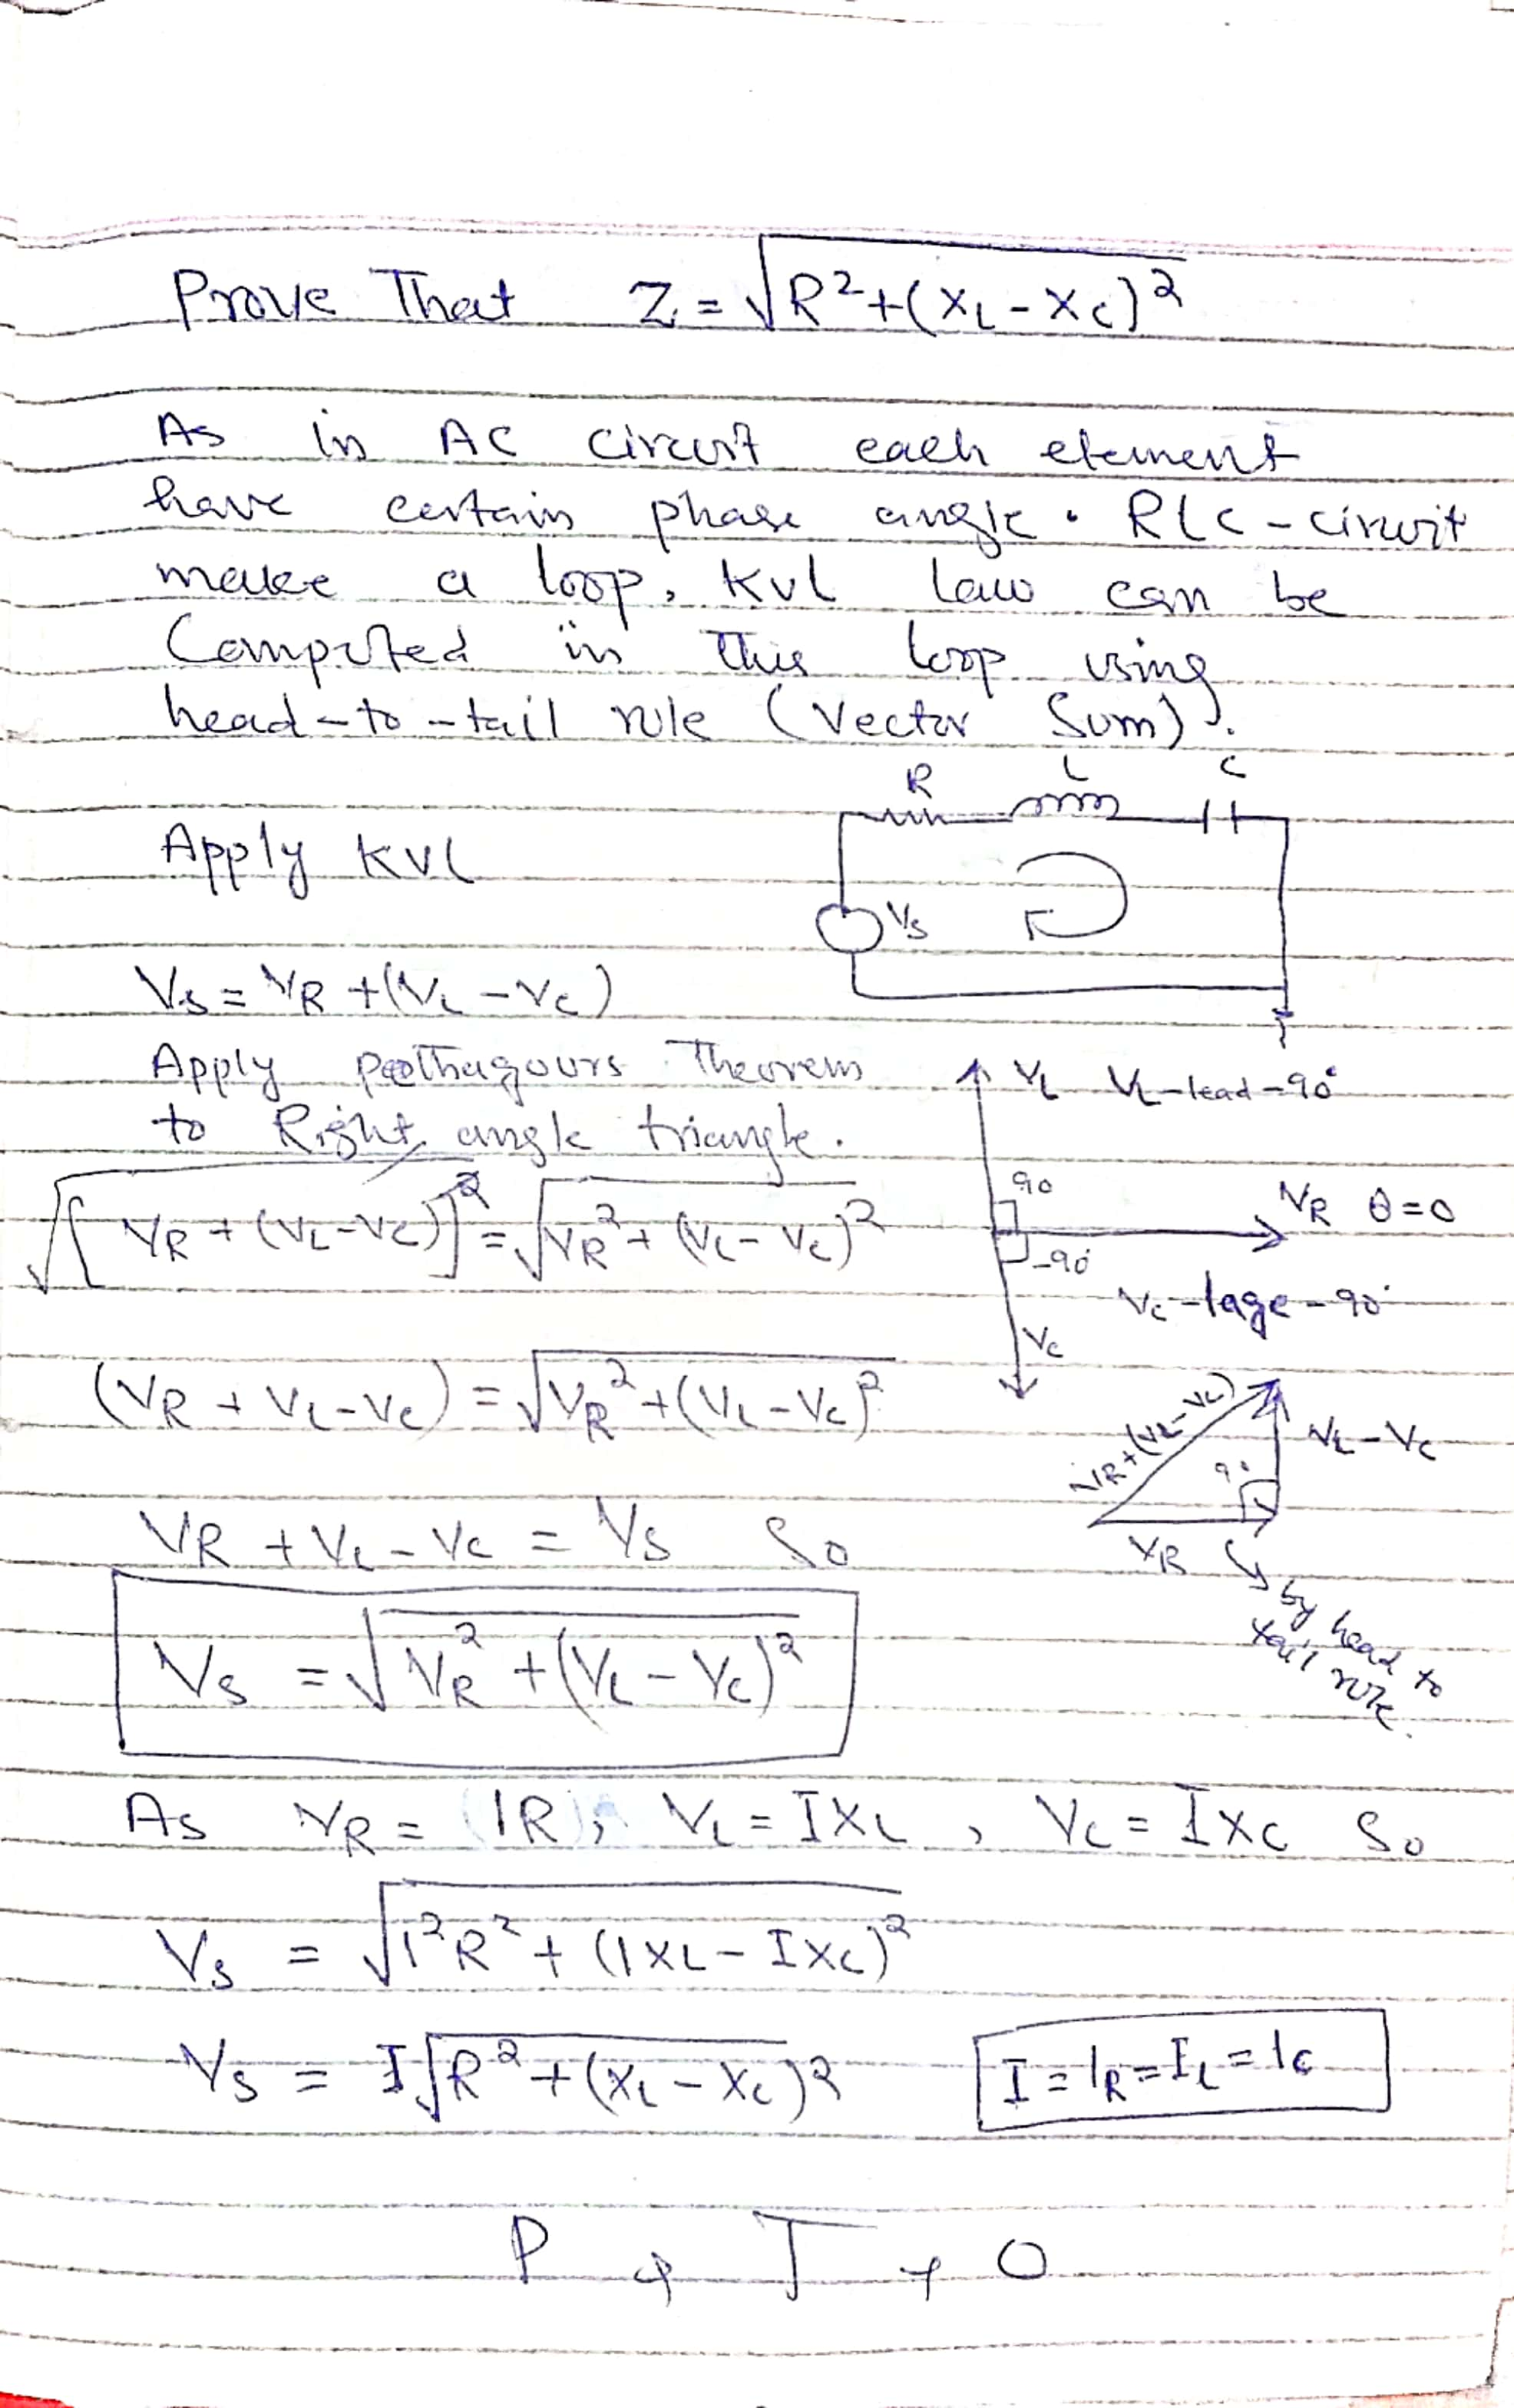 Prove That Z = √R²+(XL-Xc)²
As in AC circuit each element
have certain phase angle. RLC-circuit
make a loop, KVL law can be
Computed in this loop using
head-to-tail rule (Vector Sum).
R L C
Apply KVL
Vs
Vs = VR +(VL -Vc)
Apply peothagours Theorem
to Right angle triangle.
VL VL-lead-90°
90
VR θ=0
-90°
Vc-lage-90°
Vc
√[VR + (VL-Vc)]² = √VR² + (VL-Vc)²
(VR + VL-Vc) = √VR²+(VL-Vc)²
VR+(VL-Vc)
VL-Vc
90
VR
by head to
tail rule.
VR + VL - Vc = Vs So
Vs = √VR² +(VL - Vc)²
As VR = IR, VL = IXL, Vc = IXc So
Vs = √I²R² + (IXL- IXc)²
Vs = I√R² +(XL - Xc)²
I = IR = IL = Ic
P, T, O